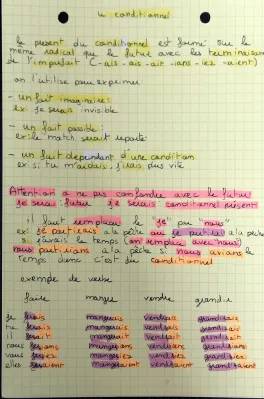 le conditionnel
le présent du conditionnel est formé sur le
même radical que le futur avec les terminaisons
de l'imparfait (-ais -ais -ait -ions -iez -aient)
on l'utilise pour exprimer
- un fait imaginaire:
ex: je serais invisible
- un fait possible:
ex: le match serait reporté
- un fait dépendant d'une condition
ex: si tu m'aidais, j'irais plus vite
Attention a ne pas confondre avec le futur
je serai: futur je serais: conditionnel présent
il faut remplacer le "je" par "nous"
ex: je partirais à la pêche ou je partirai a la pêche
si j'avais le temps (on remplace avec "nous)
nous partirions à la pêche si nous avions le
temps donc c'est du conditionnel
exemple de verbe
faire manger vendre grandir
je ferais mangerais vendrais grandirais
tu ferais mangerais vendrais grandirais
il ferait mangerait vendrait grandirait
nous ferions mangerions vendrions grandirions
vous feriez mangeriez vendriez grandiriez
elles feraient mangeraient vendraient grandiraient